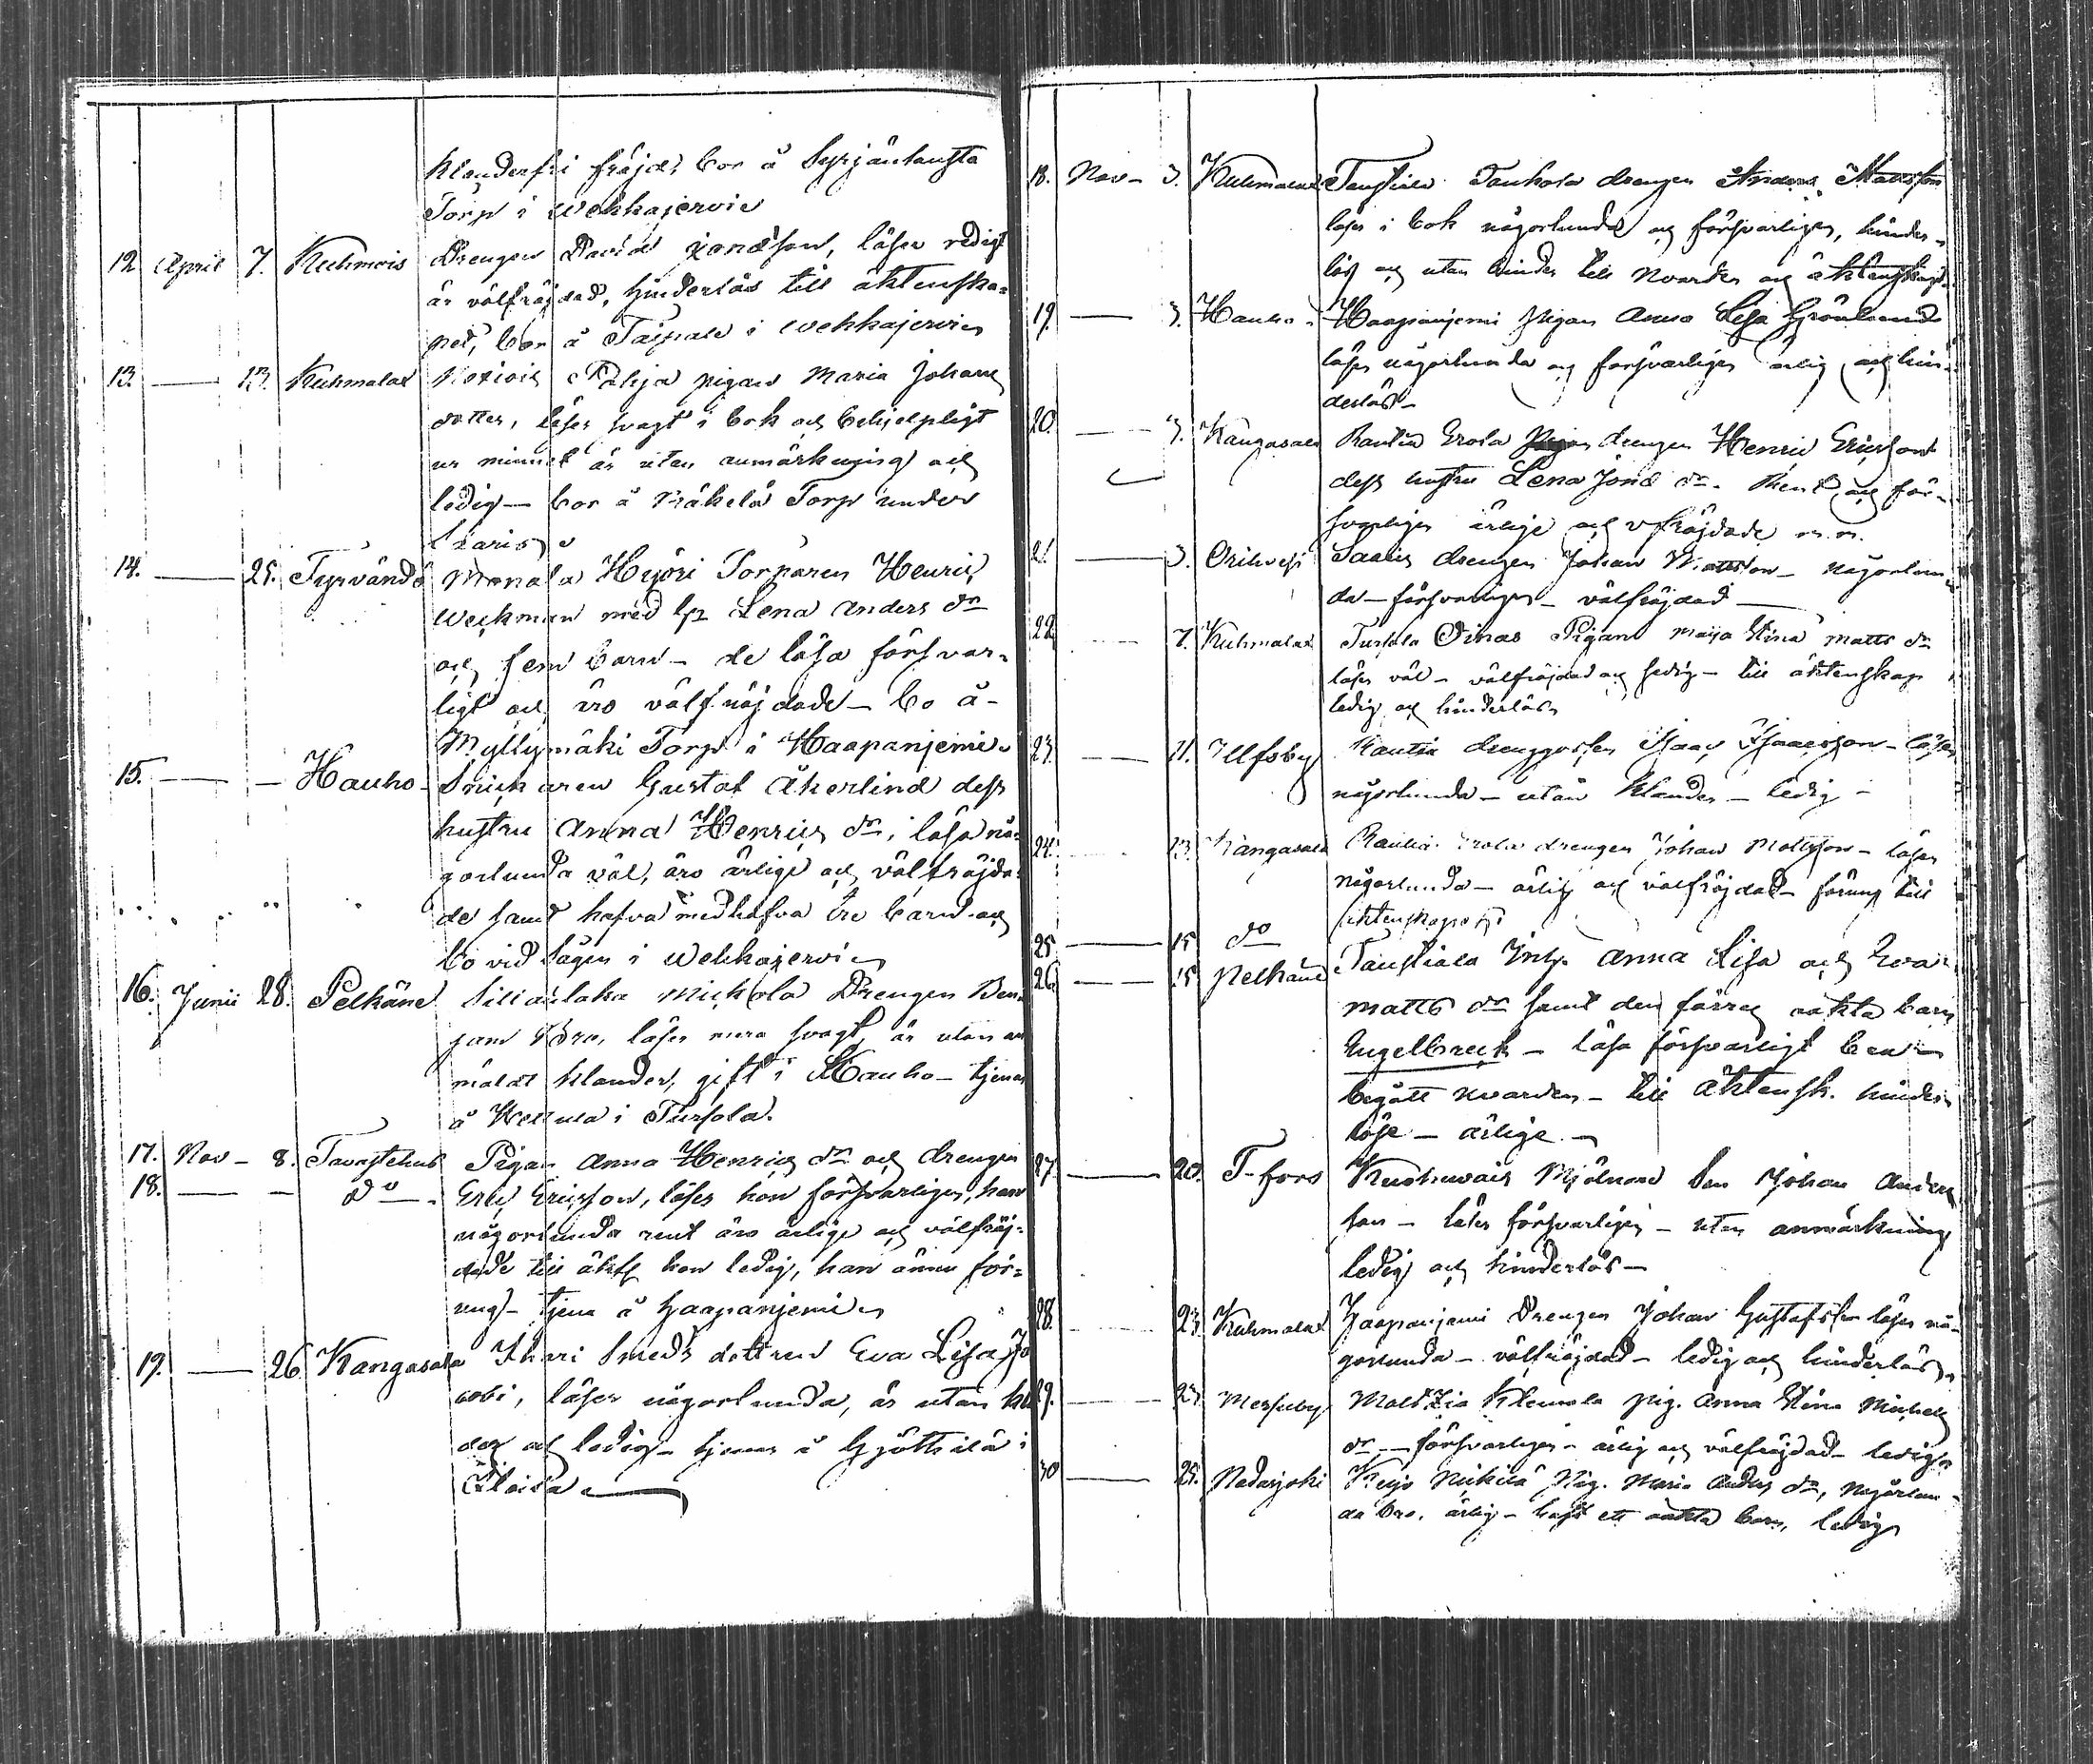 klanderfri fräjd, bor å Syrjäntausta
Torp i Wehkajervi
12. April 7. Kuhmois Drengen David Jonæson, läser redigt
är välfräjdad, hinderlös till äktenska-
pet, bor å Taipale i Wehkajervi
13. — 13. Kuhmalax pigan Maria Johans
dotter, läser svagt i bok och behjelpligt
ur minnet är utan anmärkning och
ledig — bor å Mäkelä Torp under
14. — 25. Tyrvändö Monala Hyöri Torparen Henric
Weckman med h. Lena Anders dr
och fem barn — de läsa försvar-
ligt och äro välfräjdade — bo å
Myllymäki Torp i Haapanjemi
15. — — Hauho — Snickaren Gustaf Åkerlind dess
hustru Anna Henrics dr, läsa nå-
gorlunda väl, äro ärlige och välfräjda-
de samt hafva medhafva tre barn och
bo vid Sågen i Wehkajervi
16. Junii 28. Pelkäne Mickola Drengen Ben-
jam läser mera svagt, är utan an
mäldt klander, gift i Hauho — tjenar
å i Tursola.
17. Nov — 8. Tavastehus Pigan Anna Henrics dr och drengen
18. — — do — Eric Ericsson, läser hon försvarligen, han
någorlunda rent äro ärlige och välfräj-
dade till äkt. hon ledig, han ännu för-
ung — tjena å Haapanjemi
19. — 26. Kangasala Smeds dottren Eva Lisa Ja
cobi, läser någorlunda, är utan klan
der och ledig — tjenar å i
18. Nov — 3. Kuhmalax Taustiala Tauhola drengen Anders Mattsson
läser i bok någorlunda och försvarligen, hinder-
lös och utan hinder till Nvarden och äktenskap
19. — 3. Hauho — Haapanjemi Pigan Anna Lisa Grönlund
läser någorlunda och försvarligen ärlig och hin-
derlös —
20. — 3. Kangasala Rautia Erola drengen Henric Ericsson
dess hustru Lena Jonæ dr. Rent och för-
svarligen ärlige och vfräjdade m.m.
21. — 3. Orihvesi Saaris drengen Johan Mattsson — någorlun-
da — försvarligen — välfräjdad —
22 — 7. Kuhmalax Tursola Oinas Pigan Maija Stina Matts dr
läser väl — välfräjdad och sedig — till äktenskap
ledig och hinderlös
23. — 11. Ulfsby Rautia drenggossen Isaac Isaacsson — läser
någorlunda — utan klander — ledig —
24. — 13. Kangasala Rautia Erola drengen Johan Mattsson — läser
någorlunda — ärlig och välfräjdad — förung till
äktenskap
25 — 15 do
26 — 15 Pelkäne Taustiala Inh. Anna Lisa och Eva
Matts dr samt den förras oäkta barn
Engelbrecht — läsa försvarligt
begått Nvarden — till äktensk. hinder-
löse — ärlige —
27. — 20. T-fors Mjölnare Son Johan Anders
son — läser försvarligen — utan anmärkning
ledig och hinderlös —
28. — 23. Kuhmalax Haapanjemi Drengen Johan Gustafsson läser nå-
gorlunda — välfräjdad — ledig och hinderlös
29. — 23 Messuby Klemola pig. Anna Stina Michels
dr — försvarligen — ärlig och välfräjdad — ledig
30 — 25. Padasjoki Mickilä Pig. Maria Anders dr, någorlun-
da bra, ärlig — haft ett oäkta barn, ledig